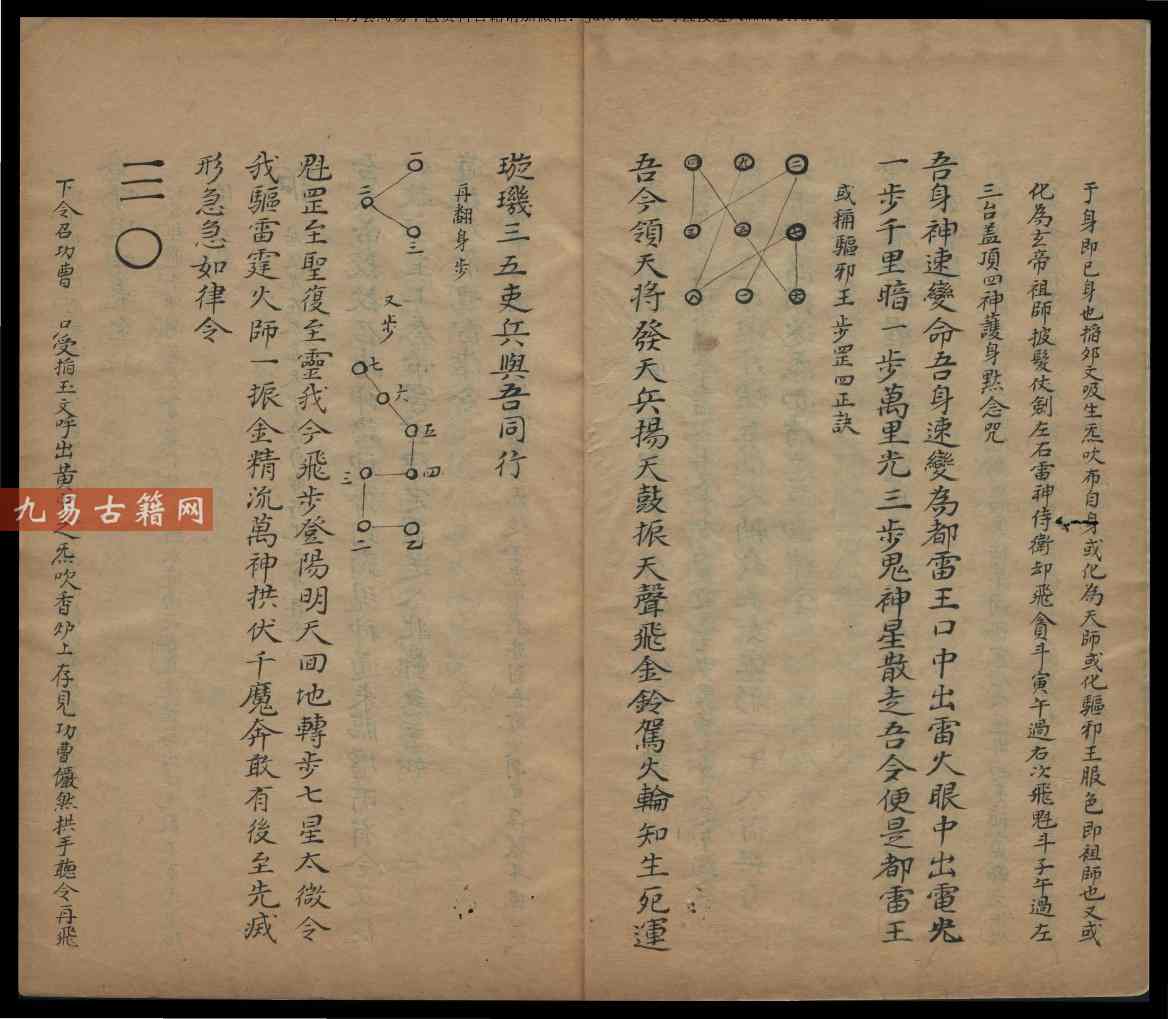 于身即已身也掐夘文吸生炁吹布自身或化為天師或化驅邪王服色即祖師也又或
化為玄帝祖師披髮仗劍左右雷神侍衛却飛貪斗寅午過右次飛魁斗子午過左
三台盖頂四神護身黙念咒
吾身神速變命吾身速變為都雷王口中出雷火眼中出電光
一步千里暗一步萬里光三步鬼神星散走吾今便是都雷王
或稱驅邪王步罡四正訣
二 七 六
九 五 一
四 三 八
吾今領天将發天兵揚天鼓振天聲飛金鈴駕火輪知生死運
璇璣三五吏兵與吾同行
再翻身步
一
二
三
又步
七
六
五
四
三
二
乙
魁罡至聖復至靈我今飛步登陽明天囬地轉步七星太微令
我驅雷霆火師一振金精流萬神拱伏千魔奔敢有後至先滅
形急急如律令
下令召功曹 口受掐玉文呼出黄之炁吹香炉上存見功曹儼然拱手聽令再飛
九易古籍网